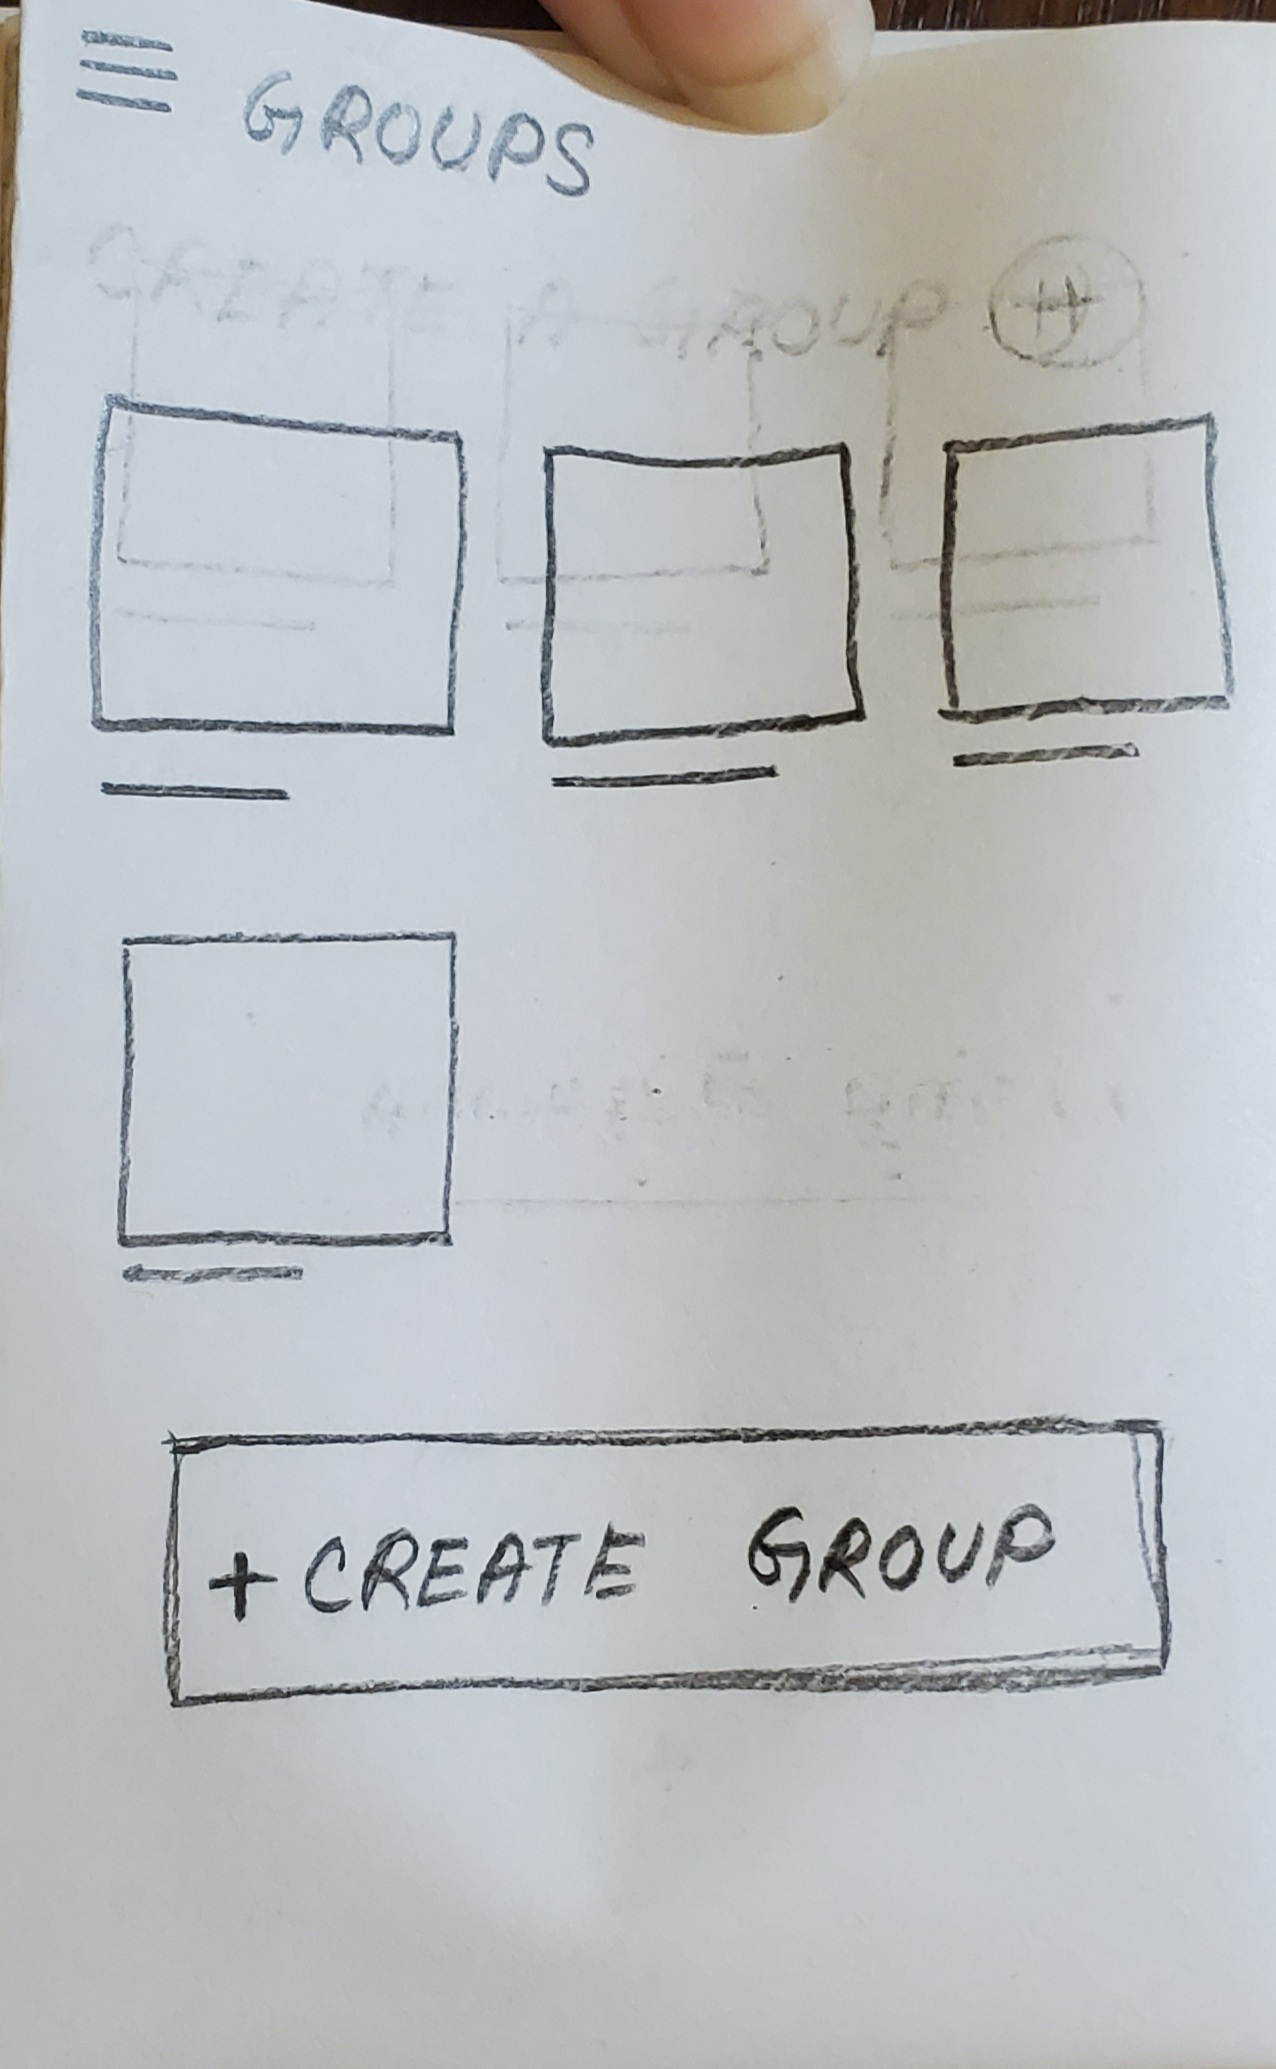 GROUPS
CREATE A GROUP +
+ CREATE GROUP